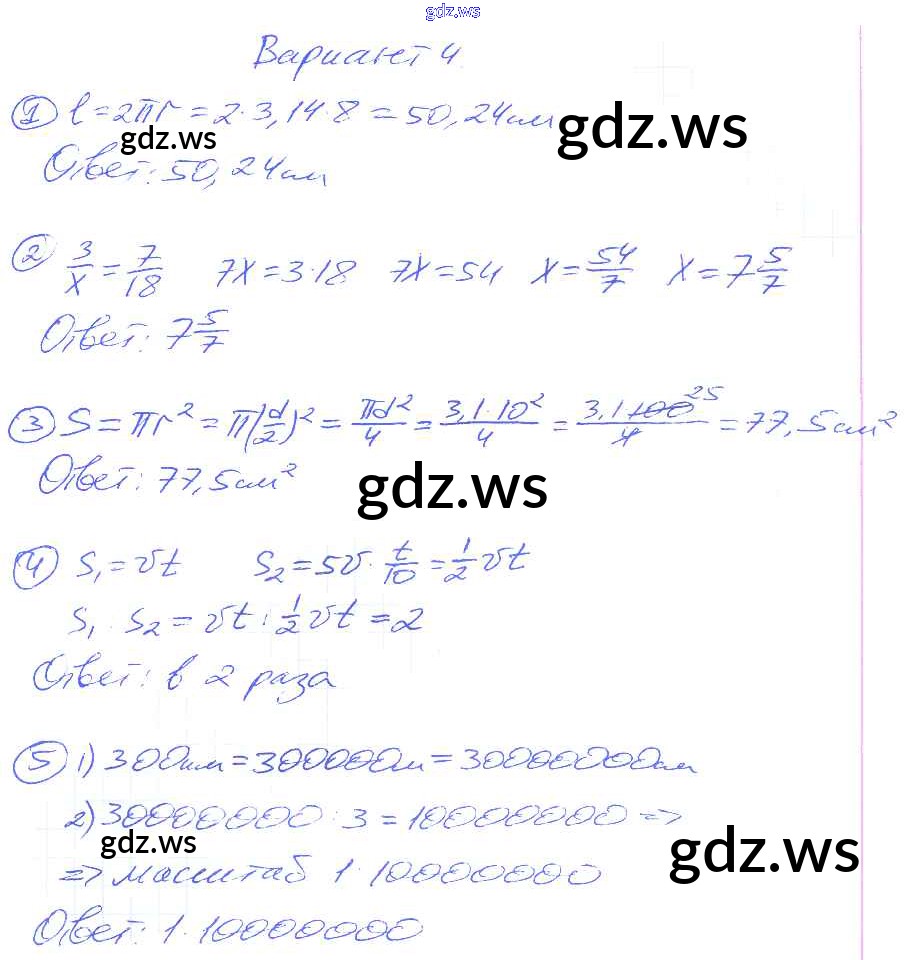 gdz.ws
Вариант 4
① l=2πr=2·3,14·8=50,24см
gdz.ws
gdz.ws
Ответ: 50,24см
② 3/x = 7/18 7x=3·18 7x=54 x=54/7 x=7 5/7
Ответ: 7 5/7
③ S=πr²=π(d/2)²=πd²/4=3,1·10²/4=3,1·100/4 25=77,5см²
Ответ: 77,5см²
gdz.ws
④ S₁=vt S₂=5v·t/10=1/2 vt
S₁:S₂=vt:1/2 vt=2
Ответ: в 2 раза
⑤ 1) 300км=300000м=30000000см
2) 30000000:3=10000000 =>
gdz.ws
gdz.ws
=> масштаб 1:10000000
Ответ: 1:10000000